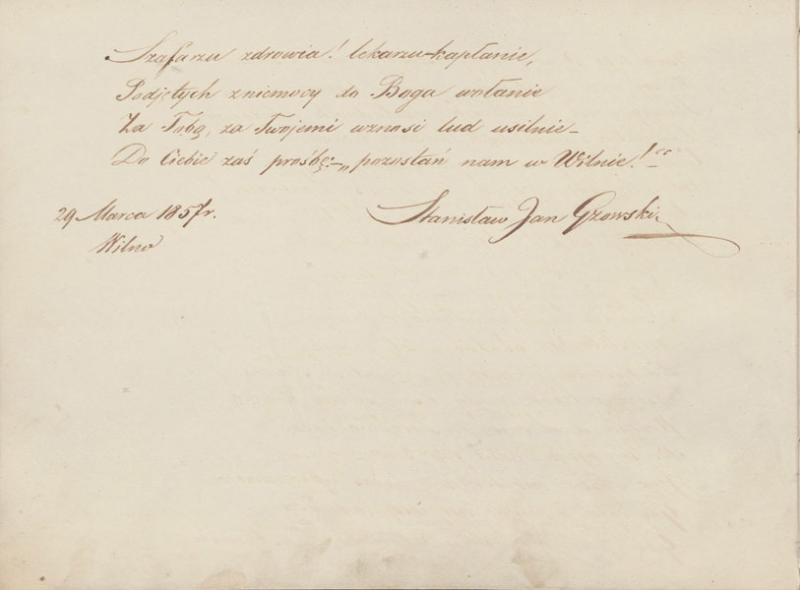 Szafarzu zdrowia! lekarzu-kapłanie,
Podjętych z niemocy do Boga wołanie
Za Tobą, za Twojemi wznosi lud usilnie –
Do Ciebie zaś prośbę: – „pozostań nam w Wilnie!"
29 Marca 1857 r.
Stanisław Jan Gzowski
Wilno